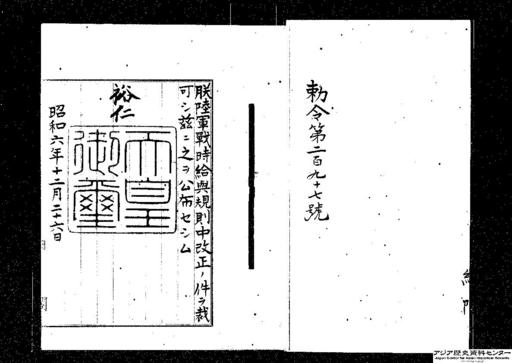 勅令第二百九十七號
朕陸軍戰時給與規則中改正ノ件ヲ裁
可シ茲ニ之ヲ公布セシム
裕仁
天皇
御璽
昭和六年十二月二十六日
アジア歴史資料センター
Japan Center for Asian Historical Records